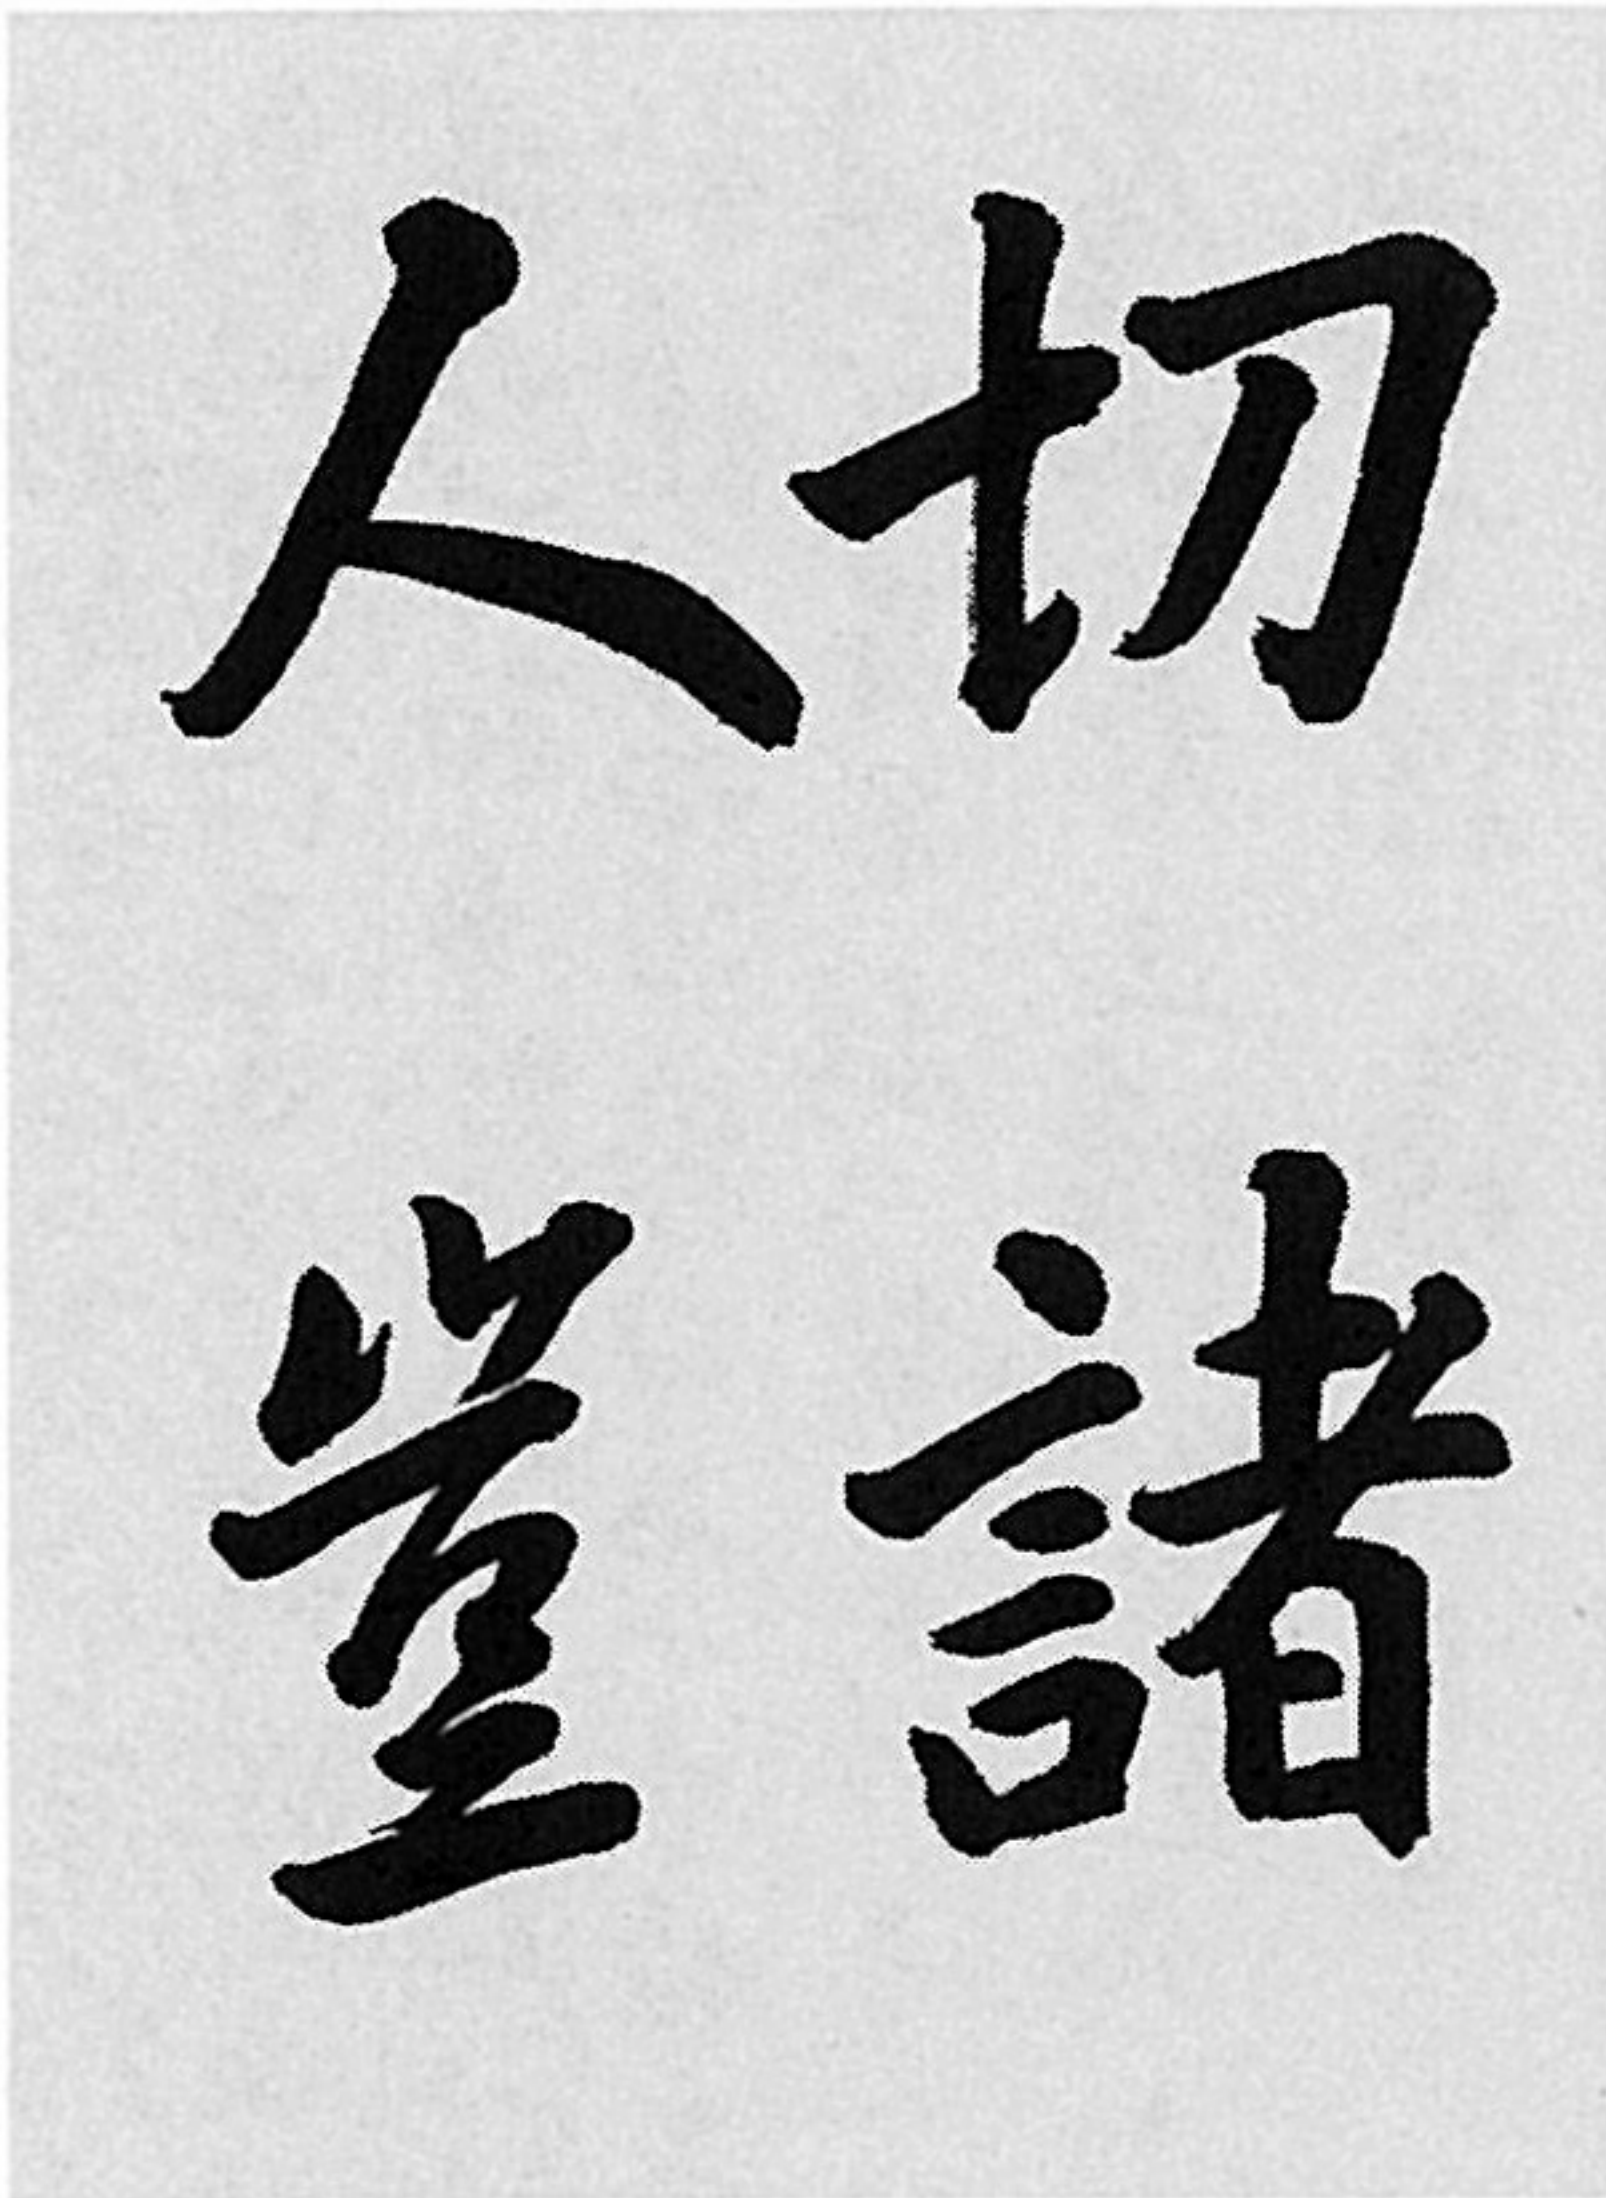 切諸
人豈